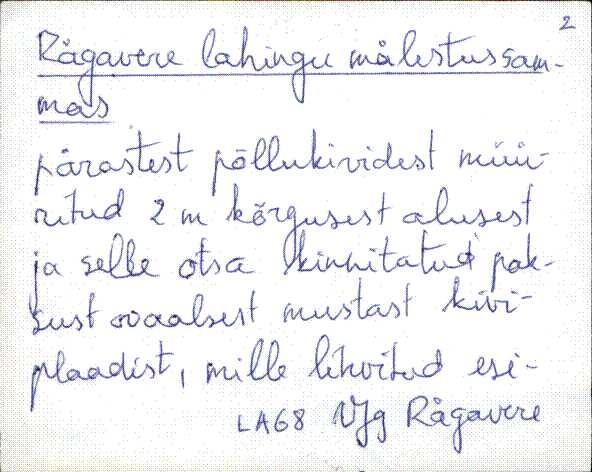 2
Rågavere lahingu målestussam-
mas
pårastest põllukividest müü-
ritud 2 m kõrgusest alusest
ja selle otsa kinnitatud pak-
sust ovaalsest mustast kivi-
plaadist, mille lihvitud esi-
LA68 VJg Rågavere